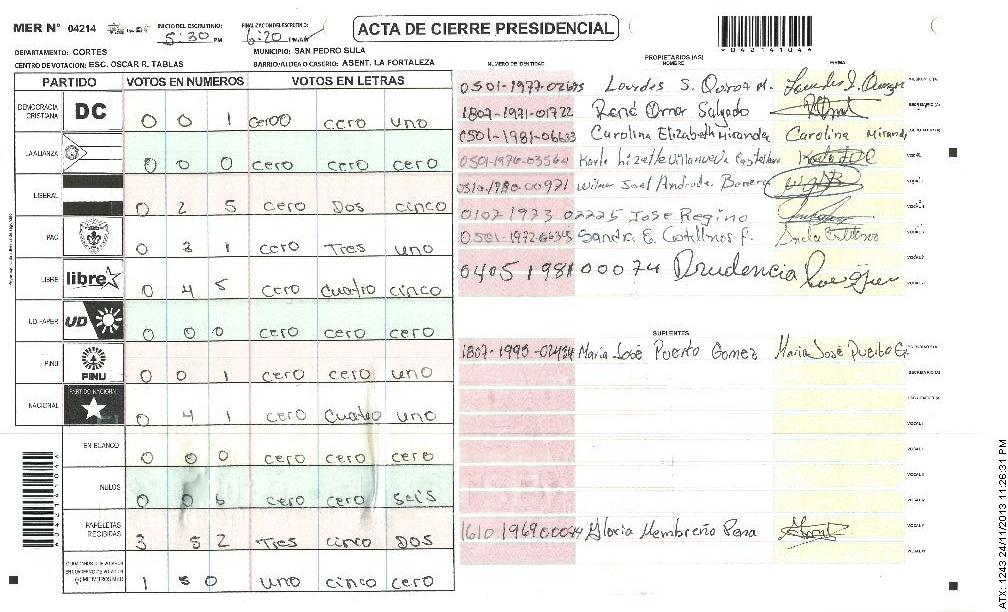 MER N° 04214
INICIO DEL ESCRUTINIO: 5:30 PM
FINALIZACION DEL ESCRUTINIO: 6:20
ACTA DE CIERRE PRESIDENCIAL
DEPARTAMENTO: CORTES
MUNICIPIO: SAN PEDRO SULA
CENTRO DE VOTACION: ESC. OSCAR R. TABLAS
BARRIO/ALDEA O CASERIO: ASENT. LA FORTALEZA
PARTIDO VOTOS EN NUMEROS VOTOS EN LETRAS
DEMOCRACIA CRISTIANA DC 0 0 1 cero cero uno
LA ALIANZA 0 0 0 cero cero cero
LIBERAL 0 2 5 cero Dos cinco
PAC 0 31 cero Tres uno
LIBRE libre 0 4 5 cero cuatro cinco
UD-FAPER UD 0 0 0 cero cero cero
PINU PINU 0 0 1 cero cero uno
NACIONAL PARTIDO NACIONAL 0 4 1 cero cuatro uno
EN BLANCO 0 0 0 cero cero cero
NULOS 0 0 6 cero cero seis
PAPELETAS RECIBIDAS 3 5 2 Tres cinco DOS
1 5 0 uno cinco cero
NUMERO DE IDENTIDAD PROPIETARIOS (AS) NOMBRE FIRMA
0501-1977-02695 Lourdes S. Quiroz M.
1807-1971-01722 René Omar Salgado
0501-1981-06633 Carolina Elizabeth Miranda Carolina Miranda
0501-1976-03564 Karla Lizette Villanueva Castellanos
0510-1980-00971 Wilmer Joel Andrade
0107 1973 02225 Jose Regino
Sandra E. Castellanos P.
0405 1981 00074 Prudencia
SUPLENTES
Maria José Puerto Gomez Maria José Puerto
Gloria Membreño Pena
ATX: 1243 24/11/2013 11:26:31 PM